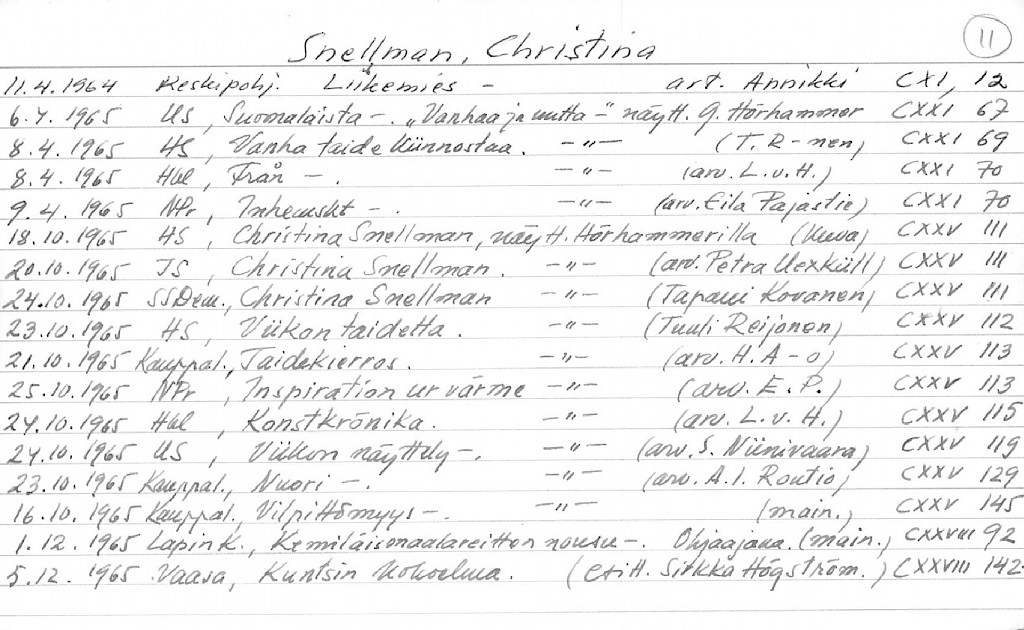 Snellman, Christina 11
11.4.1964 Keskipohj. Liikemies - art. Annikki CXI, 12
6.4.1965 US, Suomalaista -. "Vanhaa ja uutta -" näytt. G. Hörhammer CXXI 67
8.4.1965 HS, Vanha taide kiinnostaa. -"- (T. R-nen) CXXI 69
8.4.1965 Hbl, Från -. -"- (arv. L.v.H.) CXXI 70
9.4.1965 NPr, Inhemskt -. -"- (arv. Eila Pajastie) CXXI 70
18.10.1965 HS, Christina Snellman, näytt. Hörhammerilla (kuva) CXXV 111
20.10.1965 IS, Christina Snellman. -"- (arv. Petra Uexküll) CXXV 111
24.10.1965 SSDem., Christina Snellman -"- (Tapani Kovanen) CXXV 111
23.10.1965 HS, Viikon taidetta. -"- (Tuuli Reijonen) CXXV 112
21.10.1965 Kauppal., Taidekierros. -"- (arv. H.A-o) CXXV 113
25.10.1965 NPr, Inspiration ur värme -"- (arv. E.P.) CXXV 113
24.10.1965 Hbl, Konstkrönika. -"- (arv. L.v.H.) CXXV 115
24.10.1965 US, Viikon näyttely -. -"- (arv. S. Niinivaara) CXXV 119
23.10.1965 Kauppal., Nuori -. -"- (arv. A.I. Routio) CXXV 129
16.10.1965 Kauppal., Vilpittömyys -. -"- (main.) CXXV 145
1.12.1965 Lapin K., Kemiläismaalareitten nousu -. Ohjaajana. (main.) CXXVIII 92
5.12.1965 Vaasa, Kuntsin kokoelma. (esitt. Sirkka Högström.) CXXVIII 142